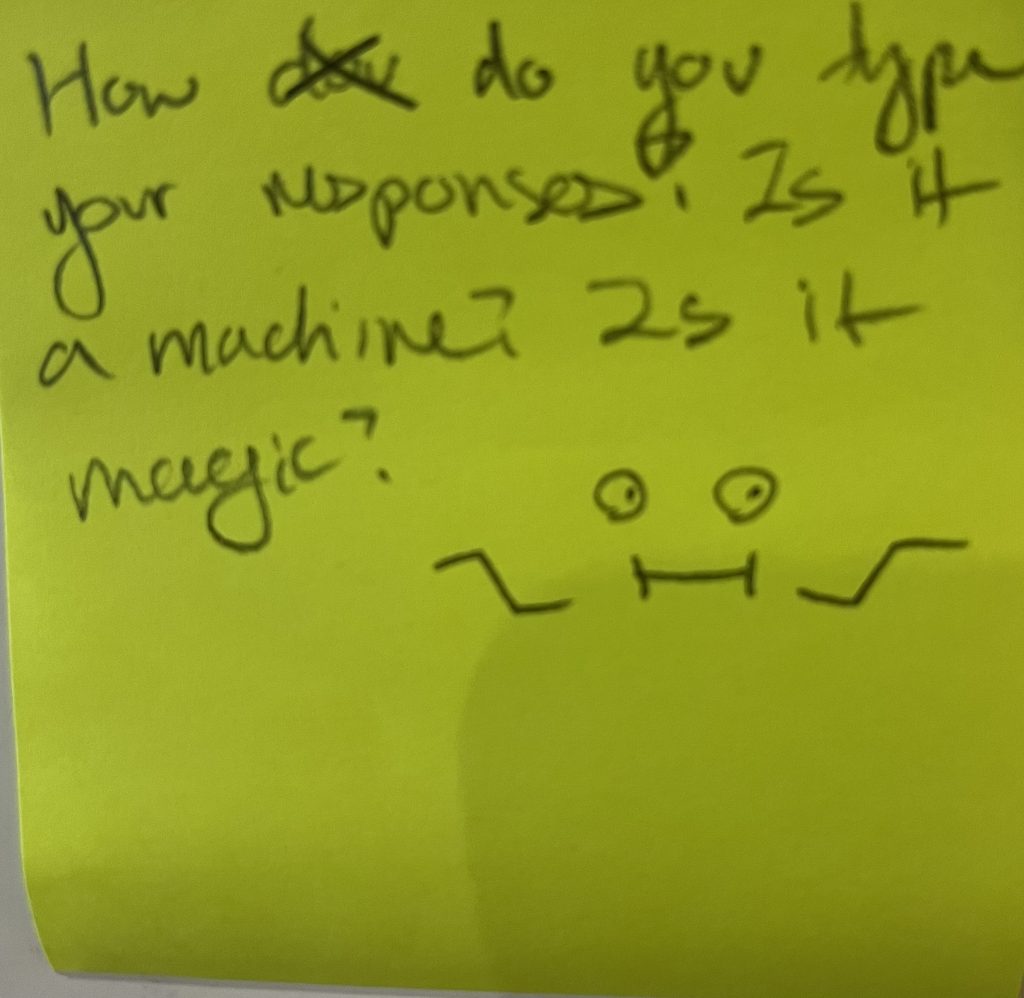 How do you type
your responses? Is it
a machine? Is it
magic?